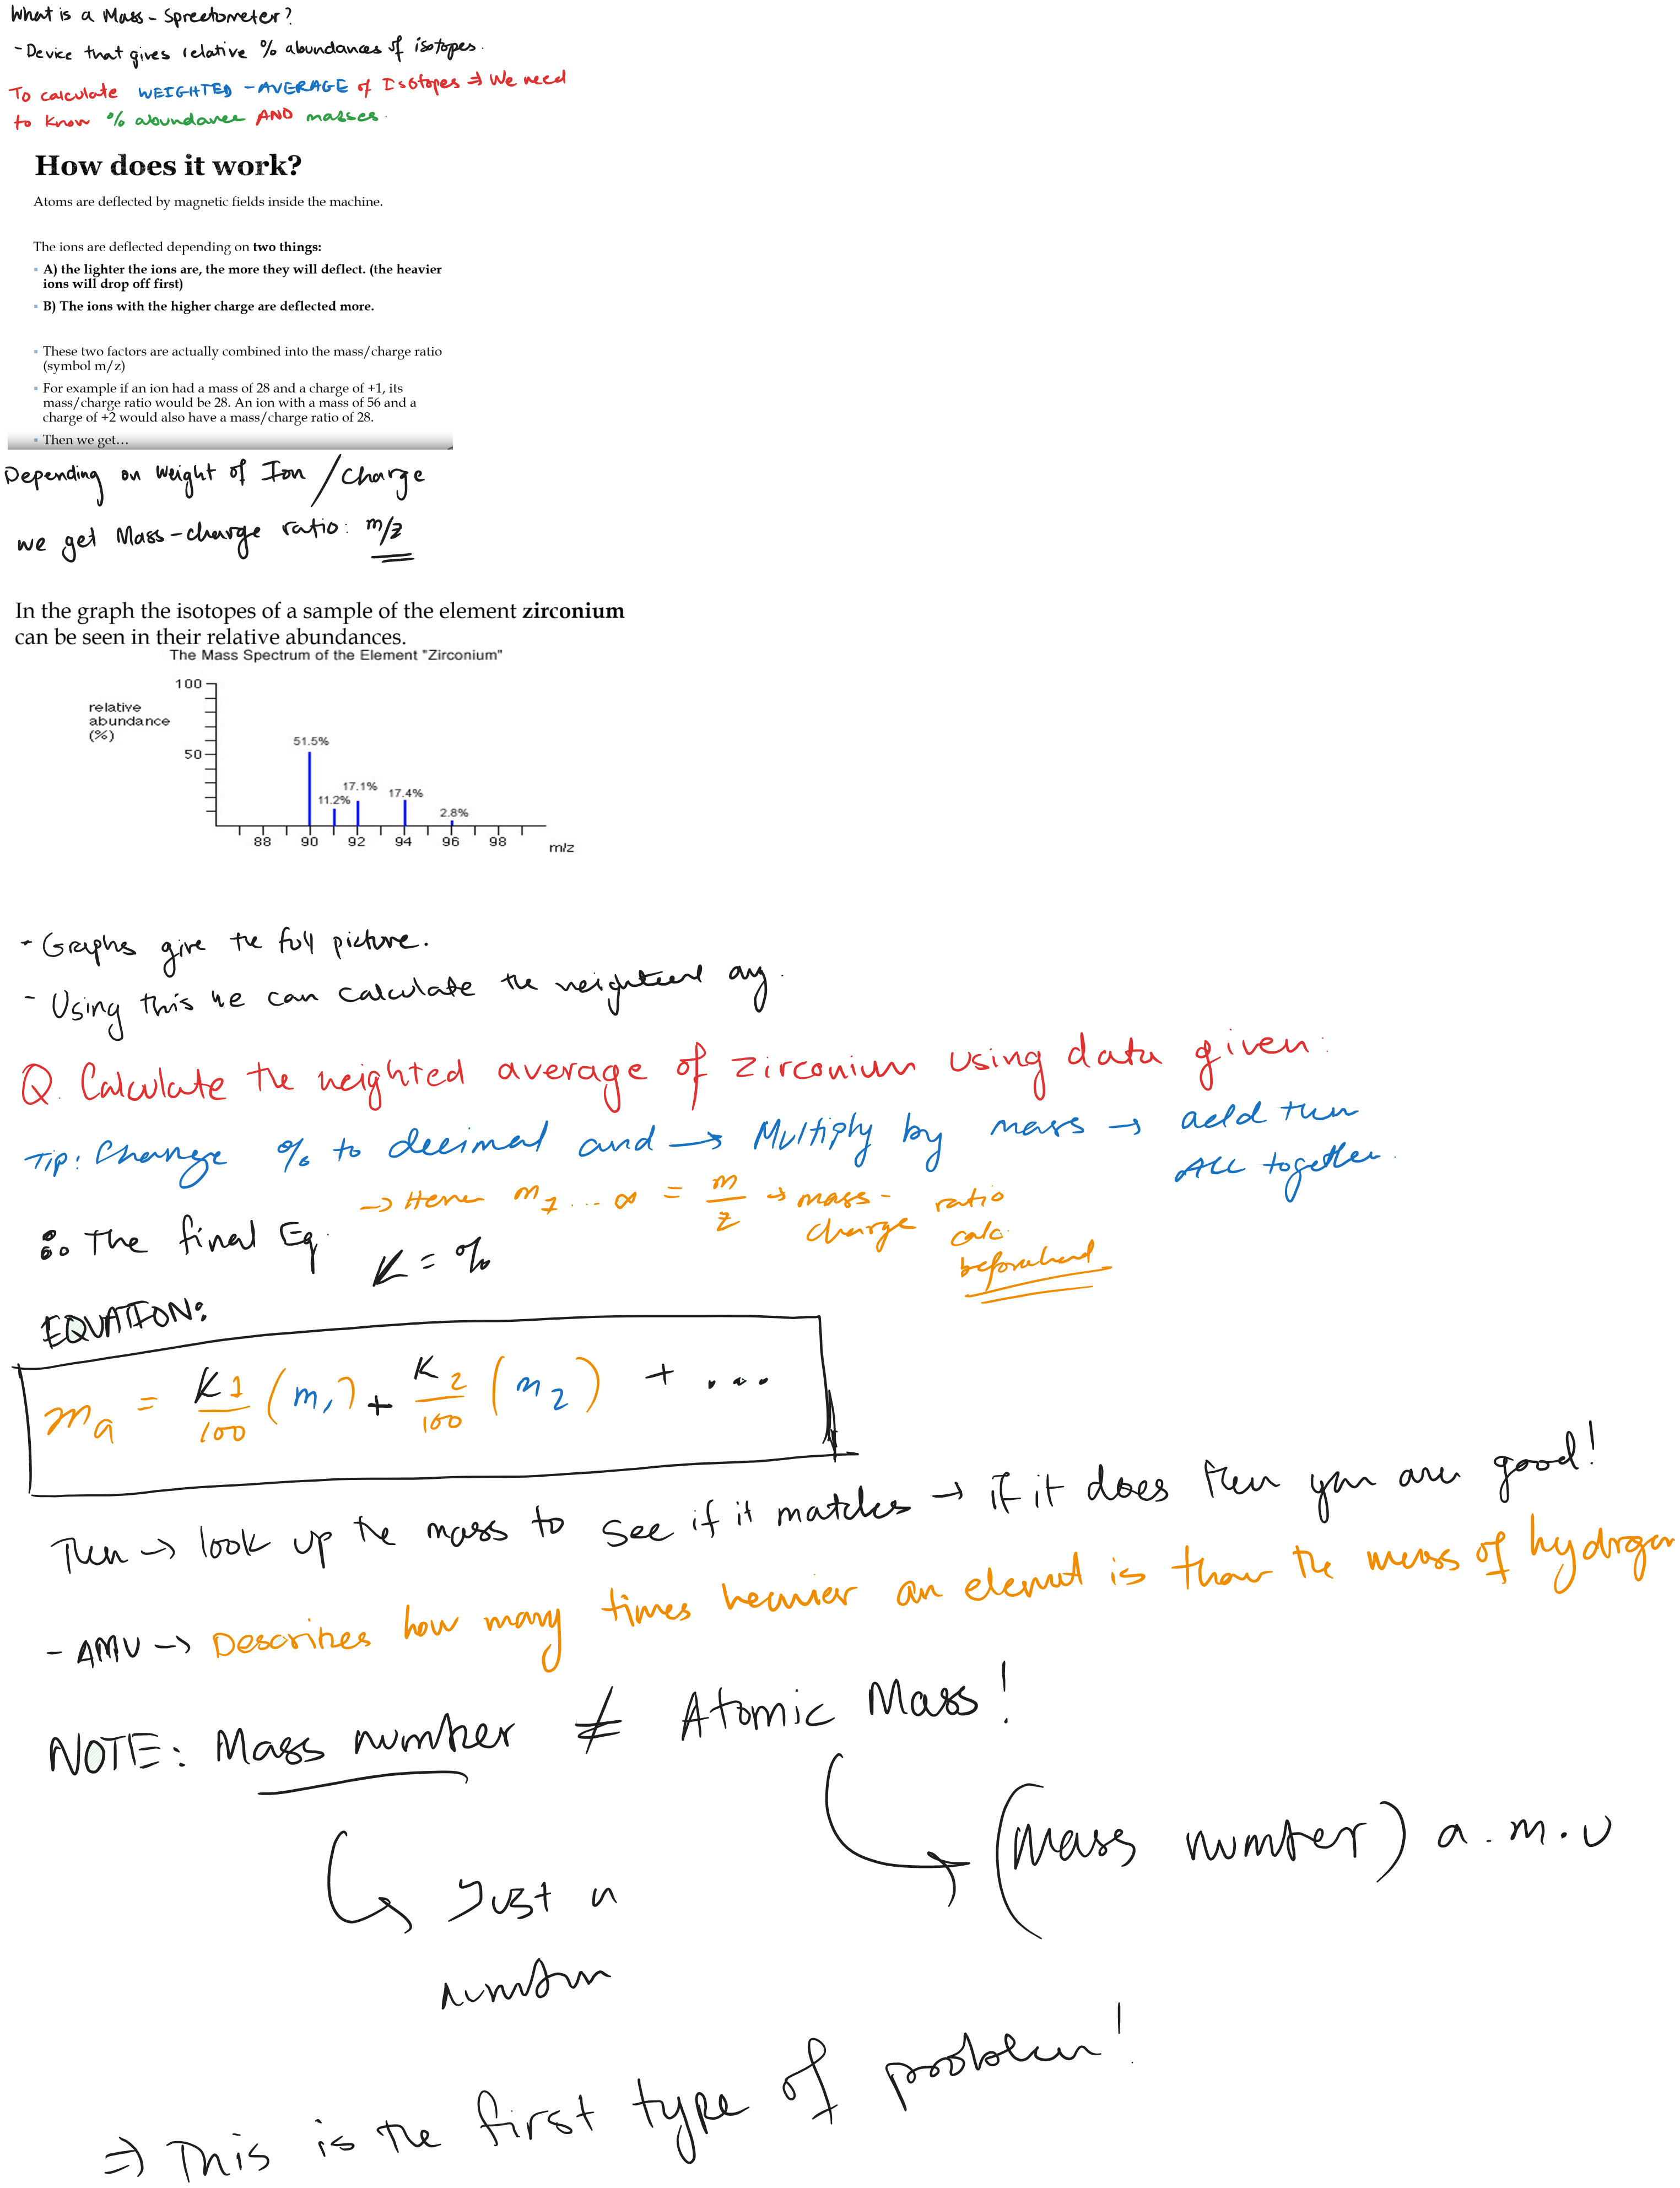 What is a Mass-Spreetometer?
-Device that gives relative % abundances of isotopes.
To calculate WEIGHTED-AVERAGE of Isotopes ⇒ We need
to know % abundance AND masses.
How does it work?
Atoms are deflected by magnetic fields inside the machine.
The ions are deflected depending on two things:
▪ A) the lighter the ions are, the more they will deflect. (the heavier
ions will drop off first)
▪ B) The ions with the higher charge are deflected more.
▪ These two factors are actually combined into the mass/charge ratio
(symbol m/z)
▪ For example if an ion had a mass of 28 and a charge of +1, its
mass/charge ratio would be 28. An ion with a mass of 56 and a
charge of +2 would also have a mass/charge ratio of 28.
▪ Then we get...
Depending on weight of Ion / Charge
we get Mass-charge ratio: m/z
In the graph the isotopes of a sample of the element zirconium
can be seen in their relative abundances.
The Mass Spectrum of the Element "Zirconium"
100
relative
abundance
(%)
50
51.5%
11.2%
17.1%
17.4%
2.8%
88 90 92 94 96 98
m/z
- Graphs give the full picture.
- Using this we can calculate the weighteed avg.
Q. Calculate the weighted average of zirconium using data given:
Tip: Change % to decimal and → Multiply by mass → add them
ALL together.
→ Hence m1 ... ∞ = m/z → mass-charge ratio
calc.
beforehand
∴ The final Eq.
K = %
EQUATION:
ma = K1/100 (m1) + K2/100 (m2) + ...
Then → look up the mass to see if it matches → if it does then you are good!
- AMU → Describes how many times heavier an element is than the mass of hydrogen
NOTE: Mass number ≠ Atomic Mass!
(Mass number) a.m.u
Just a
number
⇒ This is the first type of problem!